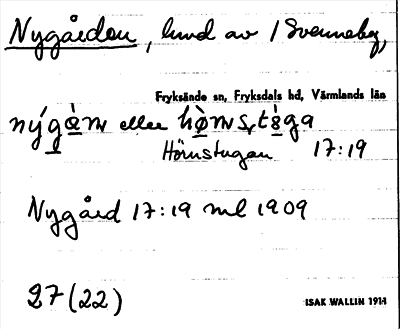 Nygården, lund av 1 Svenneby,
Fryksände sn, Fryksdals hd, Värmlands län
nýgàṇ eller hø̀mstæ̀ga
Hörnstugan 17:19
Nygård 17:19 ml 1909
27 (22)
ISAK WALLIN 1914